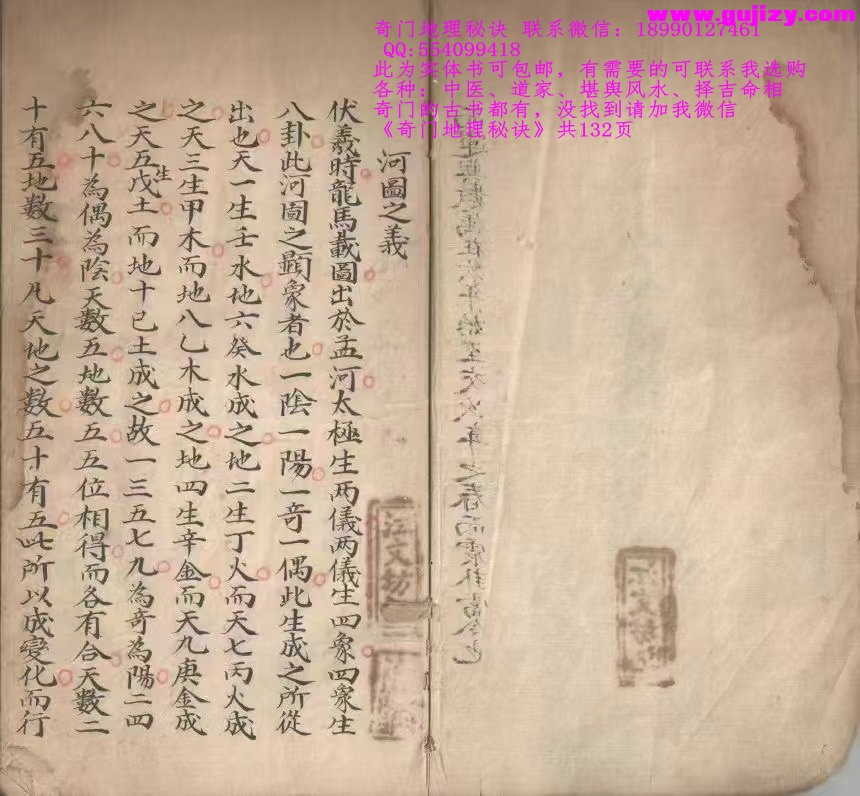 www.gujizy.com
奇门地理秘诀 联系微信：18990127461
QQ:554099418
此为实体书可包邮，有需要的可联系我选购
各种：中医、道家、堪舆风水、择吉命相
奇门的古书都有，没找到请加我微信
《奇门地理秘诀》共132页
河圖之義
伏羲時龍馬載圖出於孟河太極生两儀两儀生四象四象生
八卦此河圖之顯象者也一陰一陽一奇一偶此生成之所從
出也天一生壬水地六癸水成之地二生丁火而天七丙火成
之天三生甲木而地八乙木成之地四生辛金而天九庚金成
之天五生戊土而地十己土成之故一三五七九為奇為陽二四
六八十為偶為陰天數五地數五五位相得而各有合天數二
十有五地數三十凡天地之数五十有五此所以成變化而行
江文坊